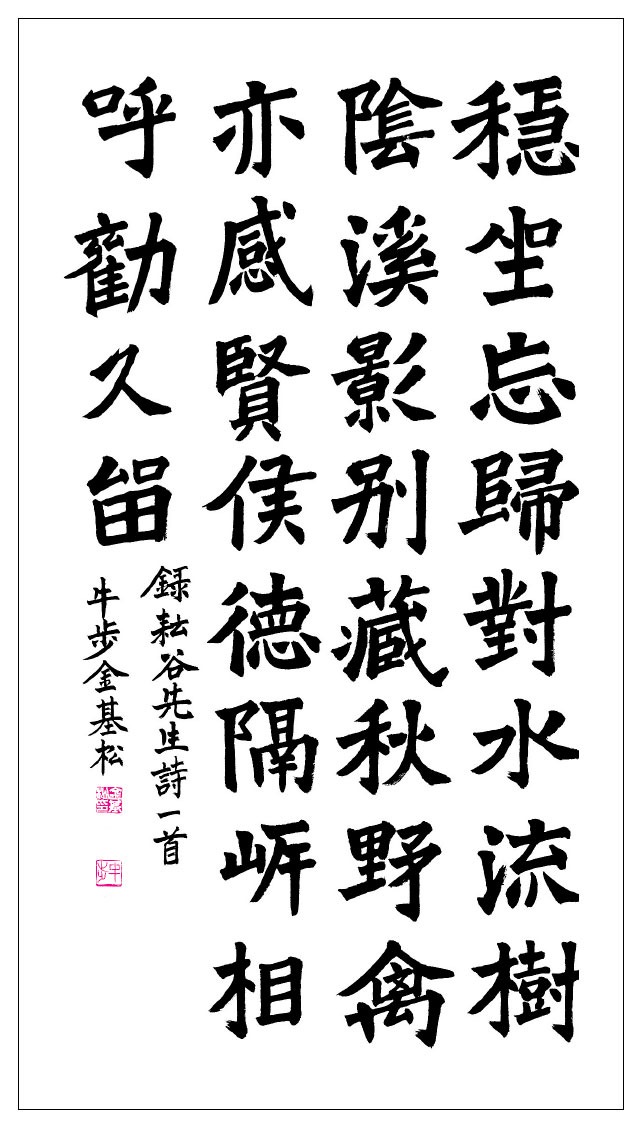 穩坐忘歸對水流樹
陰溪影別藏秋野禽
亦感賢侯德隔岸相
呼勸久留
錄耘谷先生詩一首
牛步金基松